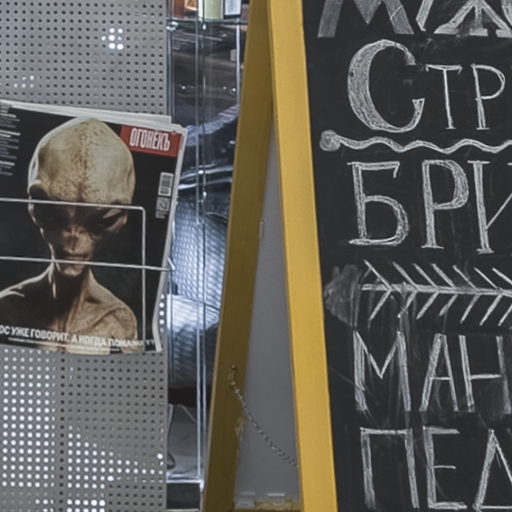 ОГОНЕКЪ
ОС УЖЕ ГОВОРИТ. А КОГДА ПОМАН
МУЖ
СТР
БРИ
МАН
ПЕД